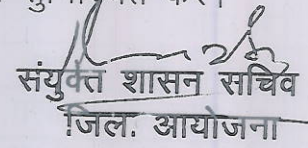 संयुक्त शासन सचिव
जिला. आयोजना